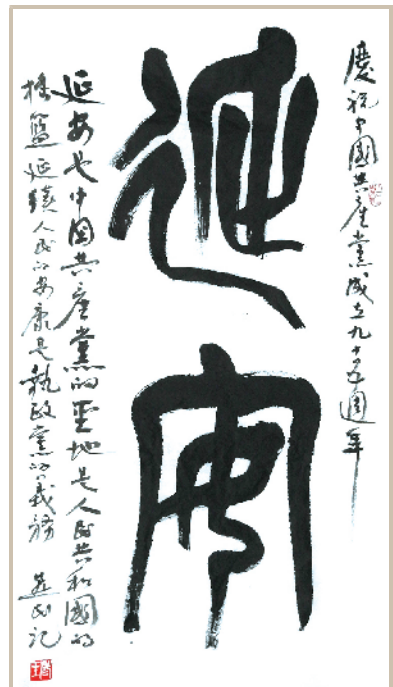 慶祝中國共産黨成立九十五週年
延安
延安是中国共産黨的聖地是人民共和國的
搖籃延續人民的安康是執政黨的義務
民記